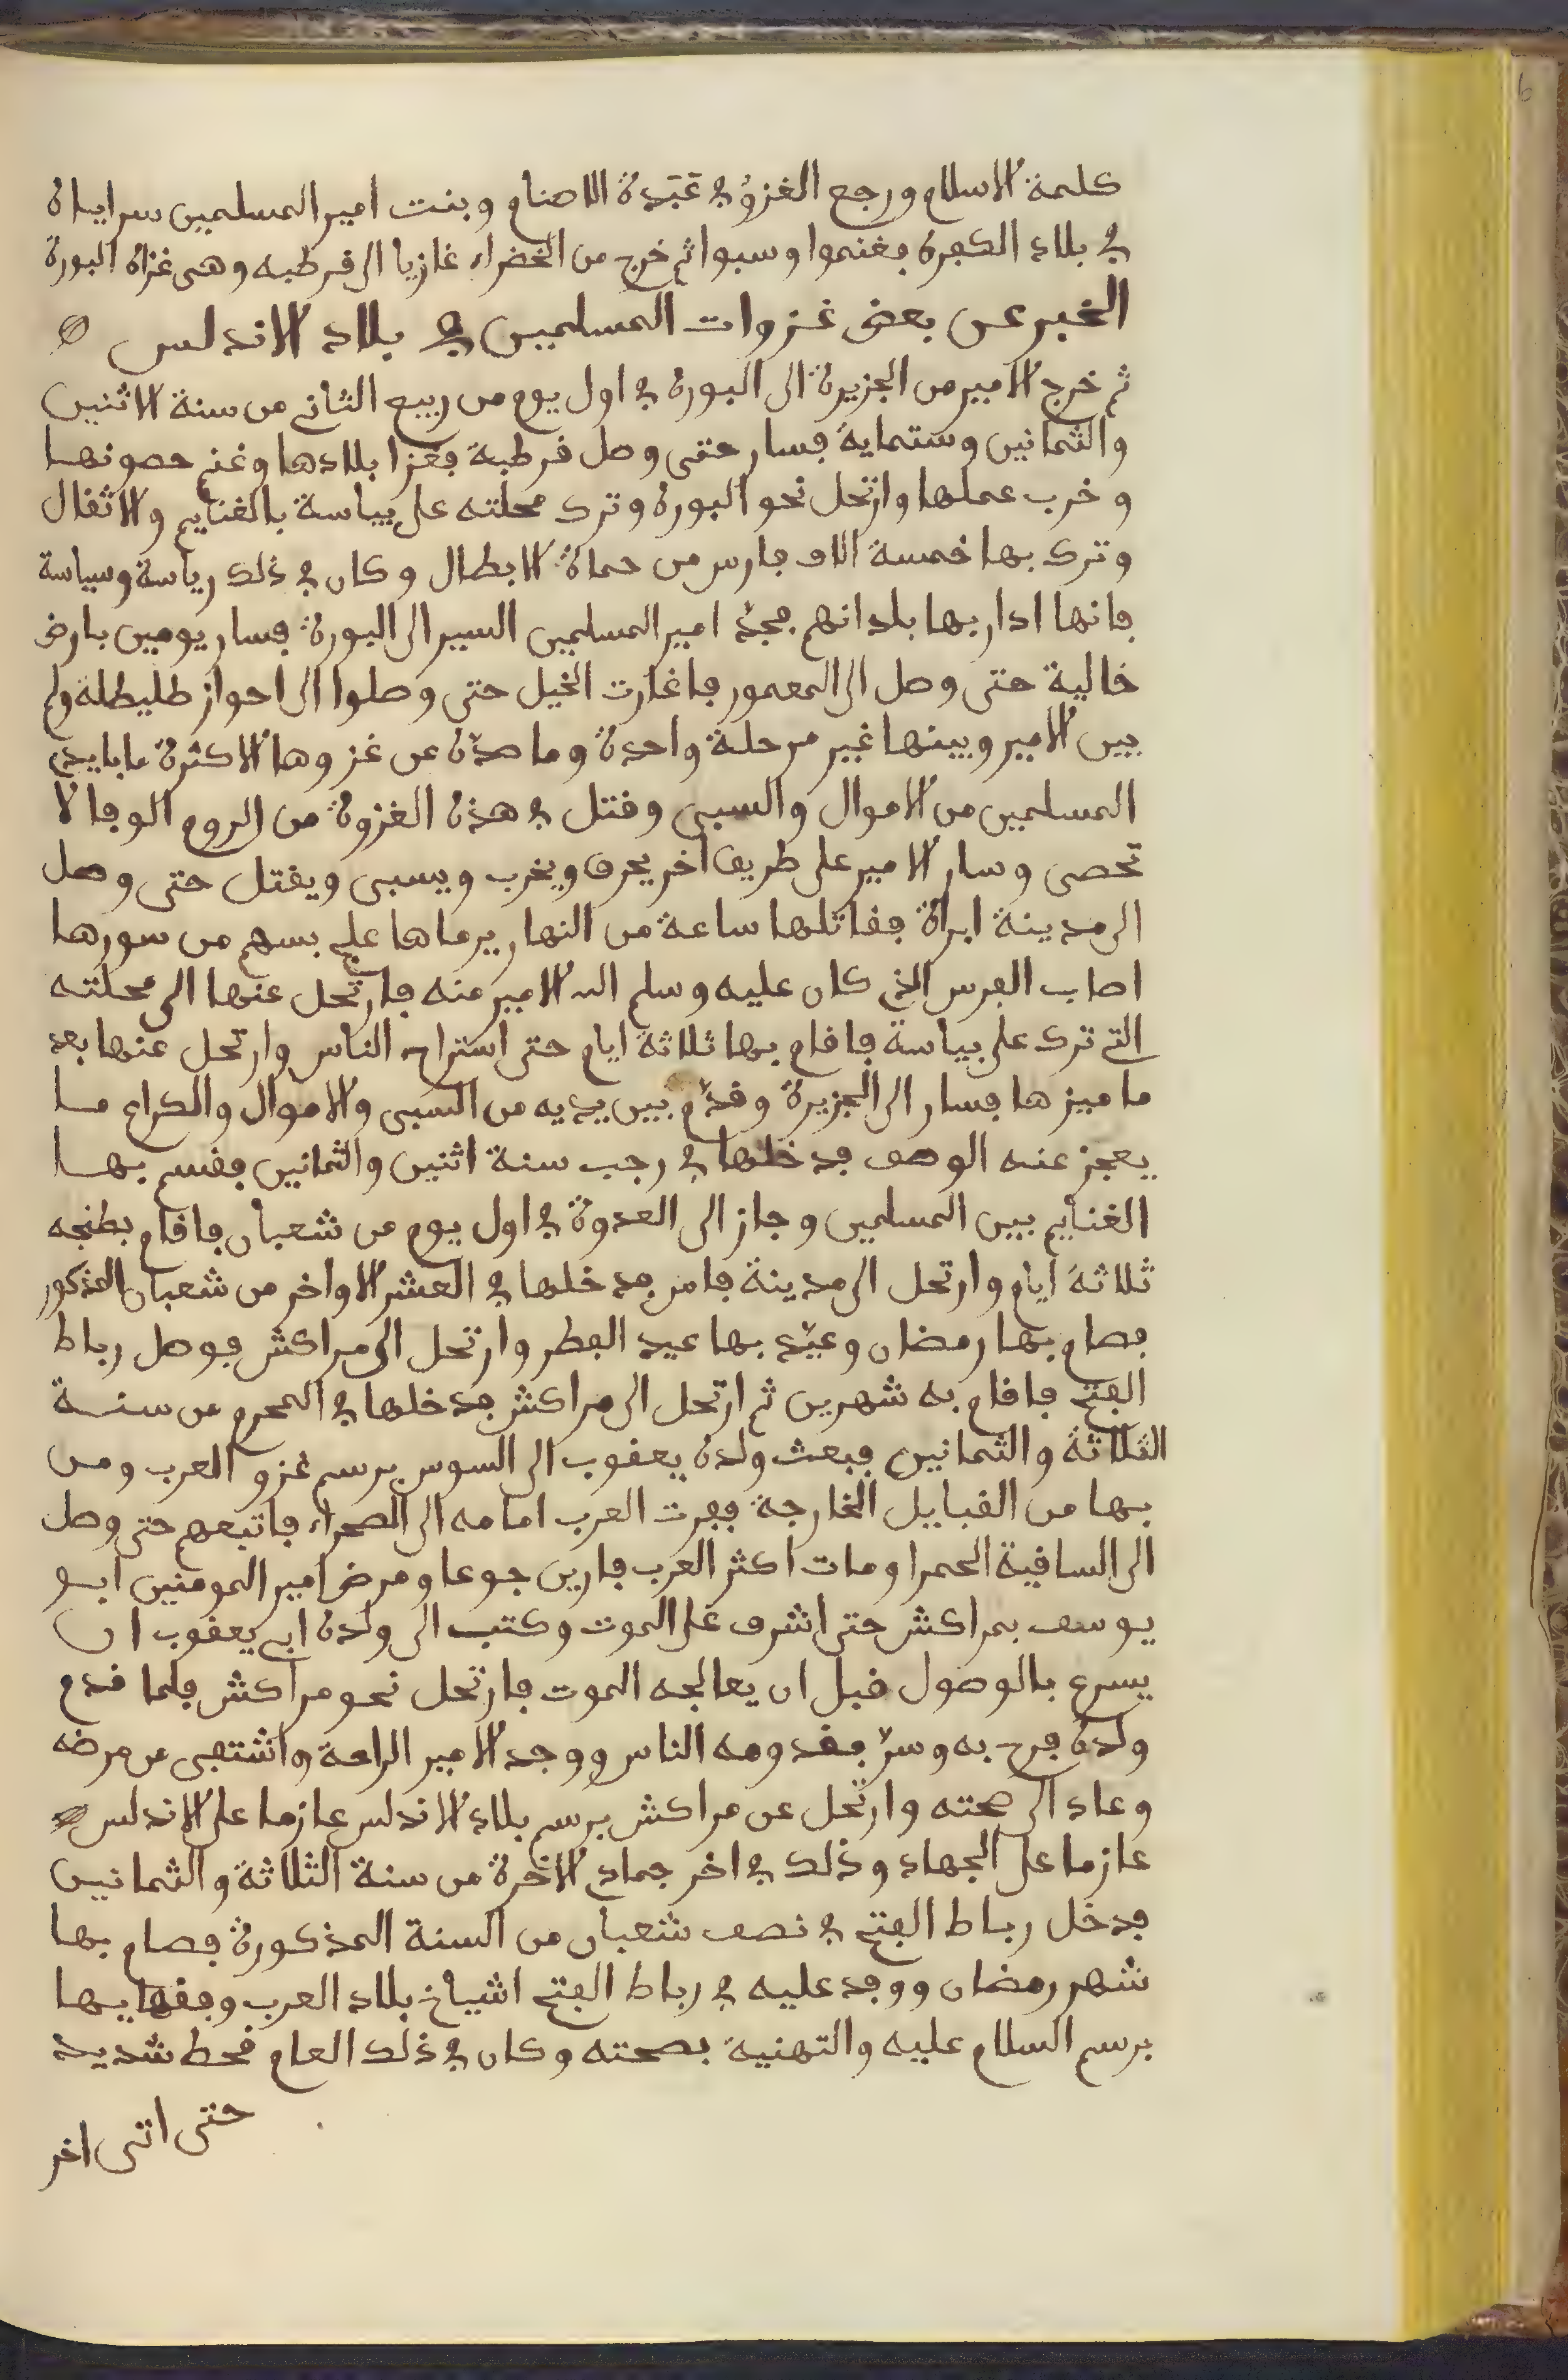 كلمة الاسلام ورجع الغزوُ في عَبَدة الاصنام وبنت امير المسلمين سراياه
في بلاد الكفرة فغنموا وسبوا ثم خرج من الخضراء غازيا الى قرطبه وهى غزاة البورة
الخبر عن بعض غزوات المسلمين في بلاد الاندلس
ثم خرج الامير من الجزيرة الى البورة في اول يوم من ربيع الثاني من سنة الاثنين
والثمانين وستماية فسار حتى وصل قرطبة فغزا بلادها وغنم حصونها
وخرب عملها وارتحل نحو البورة وترك محلته على بياسة بالغنايم والاثقال
وترك بها خمسة الاف فارس من حماة الابطال وكان في ذلك رياسة وسياسة
فانها ادار بها بلدانهم فجدّ امير المسلمين السير الى البورة فسار يومين بارض
خالية حتى وصل الى المعمور فاغارت الخيل حتى وصلوا الى احواز طليطلة ولم
بين الامير وبينها غير مرحلة واحدة وما صدّه عن غزوها الا كثرة ما بايدي
المسلمين من الاموال والسبي وقتل في هذه الغزوة من الروم الوفا لا
تحصى وسار الامير على طريق اخر يحرق ويخرب ويسبى ويقتل حتى وصل
الى مدينة ابراة فقاتلها ساعة من النهار يرماها علج بسهم من سورها
اصاب الفرس الذي كان عليه وسلم الله الامير منه فارتحل عنها الى محلته
التي ترك على بياسة فاقام بها ثلاثة ايام حتى استراح الناس وارتحل عنها بعد
ما ميزها فسار الى الجزيرة وقدّم بين يديه من السبي والاموال والكراع ما
يعجز عنه الوصف فدخلها في رجب سنة اثنين والثمانين فقسم بها
الغنايم بين المسلمين وجاز الى العدوة في اول يوم من شعبان فاقام بطنجه
ثلاثة ايام وارتحل الى مدينة فاس فدخلها في العشر الاواخر من شعبان المذكور
فصام بها رمضان وعيّد بها عيد الفطر وارتحل الى مراكش فوصل رباط
الفتح فاقام به شهرين ثم ارتحل الى مراكش فدخلها في المحرم من سنة
الثلاثة والثمانين فبعث ولده يعقوب الى السوس برسم غزو العرب ومن
بها من القبايل الخارجة ففرت العرب امامه الى الصحراء فاتبعهم حتى وصل
الى الساقية الحمرا ومات اكثر العرب فارين جوعا ومرض امير المومنين ابو
يوسف بمراكش حتى اشرف على الموت وكتب الى ولده ابي يعقوب ان
يسرع بالوصول قبل ان يعالجه الموت فارتحل نحو مراكش فلما قدم
ولده فرح به وسرّ بقدومه الناس ووجد الامير الراحة واشتفى من مرضه
وعاد الى صحته وارتحل عن مراكش برسم بلاد الاندلس عازما على الاندلس
عازما على الجهاد وذلك في اخر جمادي الاخرة من سنة الثلاثة والثمانين
فدخل رباط الفتح في نصف شعبان من السنة المذكورة فصام بها
شهر رمضان ووفد عليه في رباط الفتح اشياخ بلاد العرب وفقهايها
برسم السلام عليه والتهنية بصحته وكان في ذلك العام قحط شديد
حتى اتى اخر